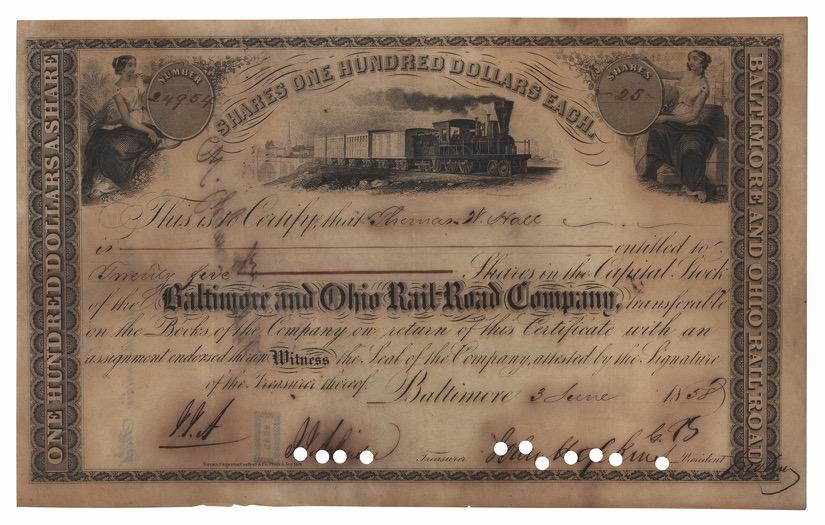 NUMBER
24954
SHARES ONE HUNDRED DOLLARS EACH.
SHARES
25
ONE HUNDRED DOLLARS A SHARE
BALTIMORE AND OHIO RAILROAD
This is to Certify, that Thomas W. Hall
is entitled to
Twenty five Shares in the Capital Stock
of the Baltimore and Ohio Rail-Road Company, transferable
on the Books of the Company on return of this Certificate with an
assignment endorsed thereon Witness the Seal of the Company, attested by the Signature
of the Treasurer thereof. Baltimore 3 June 1858
Treasurer President